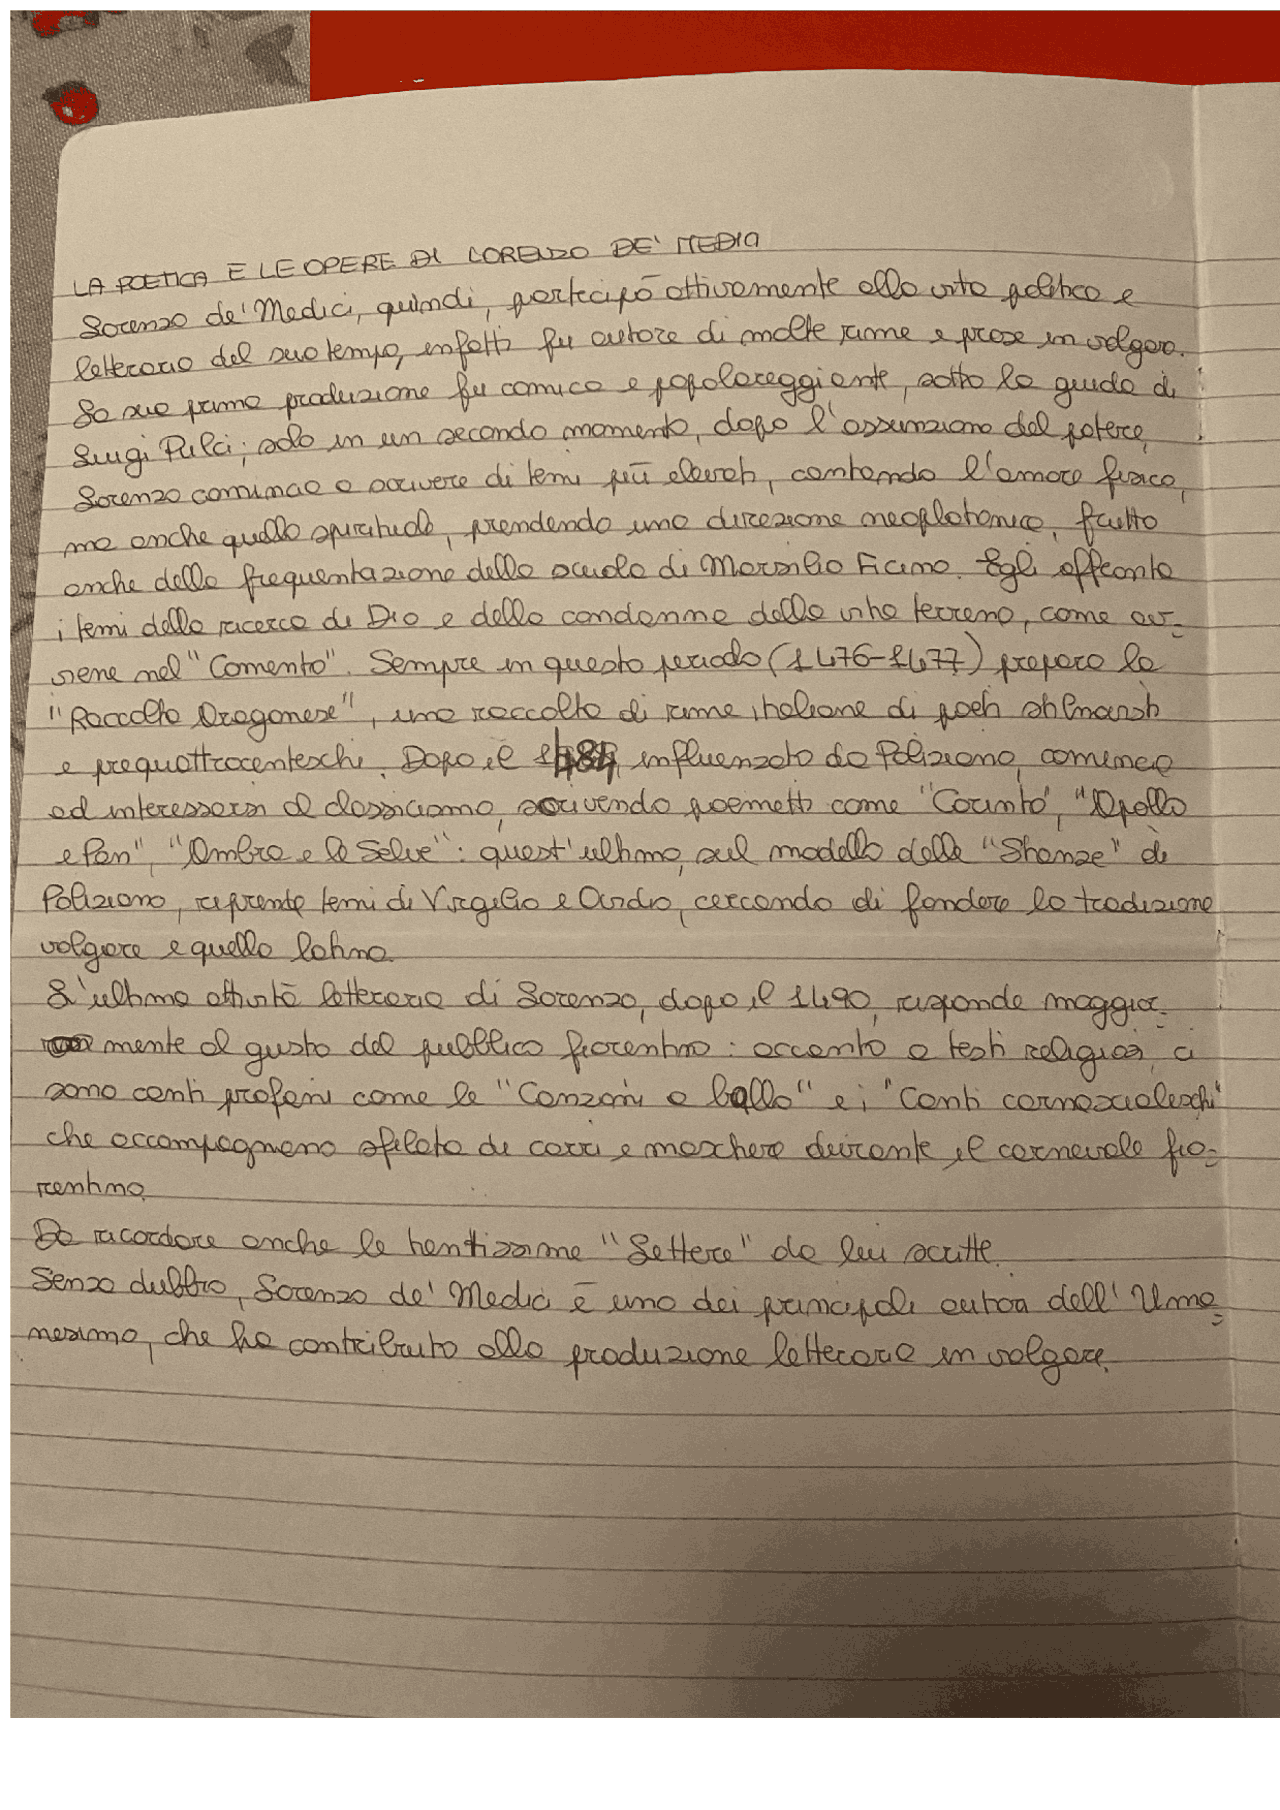 LA POETICA E LE OPERE DI LORENZO DE' MEDICI
Lorenzo de' Medici, quindi, partecipò attivamente alla vita politica e
letteraria del suo tempo, infatti fu autore di molte rime e prose in volgare.
La sua prima produzione fu comica e popolareggiante, sotto la guida di
Luigi Pulci; solo in un secondo momento, dopo l'assunzione del potere,
Lorenzo cominciò a scrivere di temi più elevati, cantando l'amore fisico,
ma anche quello spirituale, prendendo una direzione neoplatonica, frutto
anche della frequentazione della scuola di Marsilio Ficino. Egli affronta
i temi della ricerca di Dio e della condanna della vita terrena, come av-
viene nel "Comento". Sempre in questo periodo (1476-1477) prepara la
"Raccolta Aragonese", una raccolta di rime italiane di poeti stilnovisti
e prequattrocenteschi. Dopo il 1484, influenzato da Poliziano, comincia
ad interessarsi al classicismo, scrivendo poemetti come "Corinto", "Apollo
e Pan", "Ambra e le Selve": quest'ultimo, sul modello delle "Stanze" di
Poliziano, riprende temi di Virgilio e Ovidio, cercando di fondere la tradizione
volgare e quella latina.
L'ultima attività letteraria di Lorenzo, dopo il 1490, risponde maggior-
mente al gusto del pubblico fiorentino: accanto a testi religiosi, ci
sono canti profani come le "Canzoni a ballo" e i "Canti carnascialeschi"
che accompagnano sfilate di carri e maschere durante il carnevale fio-
rentino.
Da ricordare anche le tantissime "Lettere" da lui scritte.
Senza dubbio, Lorenzo de' Medici è uno dei principali autori dell'Uma-
nesimo, che ha contribuito alla produzione letteraria in volgare.